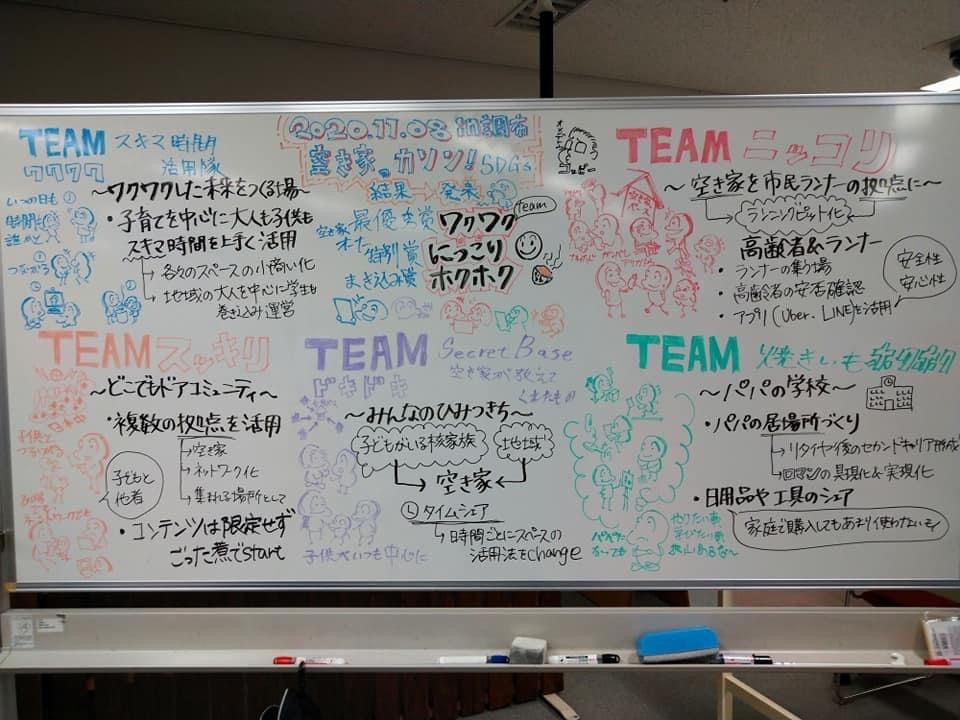 TEAM スキマ時間
ワクワク 活用隊
〜ワクワクした未来をつくる場〜
・子育てを中心に大人も子供も
スキマ時間を上手く活用
各々のスペースの小商い化
地域の大人を中心に学生も
巻き込み運営
いつの日も
時間を
誰かと
つながる
2020.11.08 in調布
空き家。カソン!SDGs
結果→発表
最優秀賞 ワクワク team
空き家
オナー 特別賞 にっこり
まき込み賞 ホクホク
TEAM ニッコリ
〜空き家を市民ランナーの拠点に〜
ランニングピット化
高齢者&ランナー
・ランナーの集う場
・高齢者の安否確認
・アプリ(Uber、LINE)を活用
安全性
安心性
TEAM スッキリ
〜どこでもドアコミュニティ〜
・複数の拠点を活用
空き家
ネットワーク化
集まれる場所として
子どもと
他者
・コンテンツは限定せず
ごった煮でstart
子供と
つながる
TEAM Secret Base
ドキドキ 空き家が教えて
くれたもの
〜みんなのひみつきち〜
子どもがいる核家族
地域
空き家
タイムシェア
時間ごとにスペースの
活用法をchange
子供がいつも中心に
TEAM 焼きいも
〜パパの学校〜
・パパの居場所づくり
リタイヤ後のセカンドキャリア形成
の具現化&実現化
・日用品や工具のシェア
家庭で購入してもあまり使わないモノ
やりたい事
学びたい事
沢山あるな〜